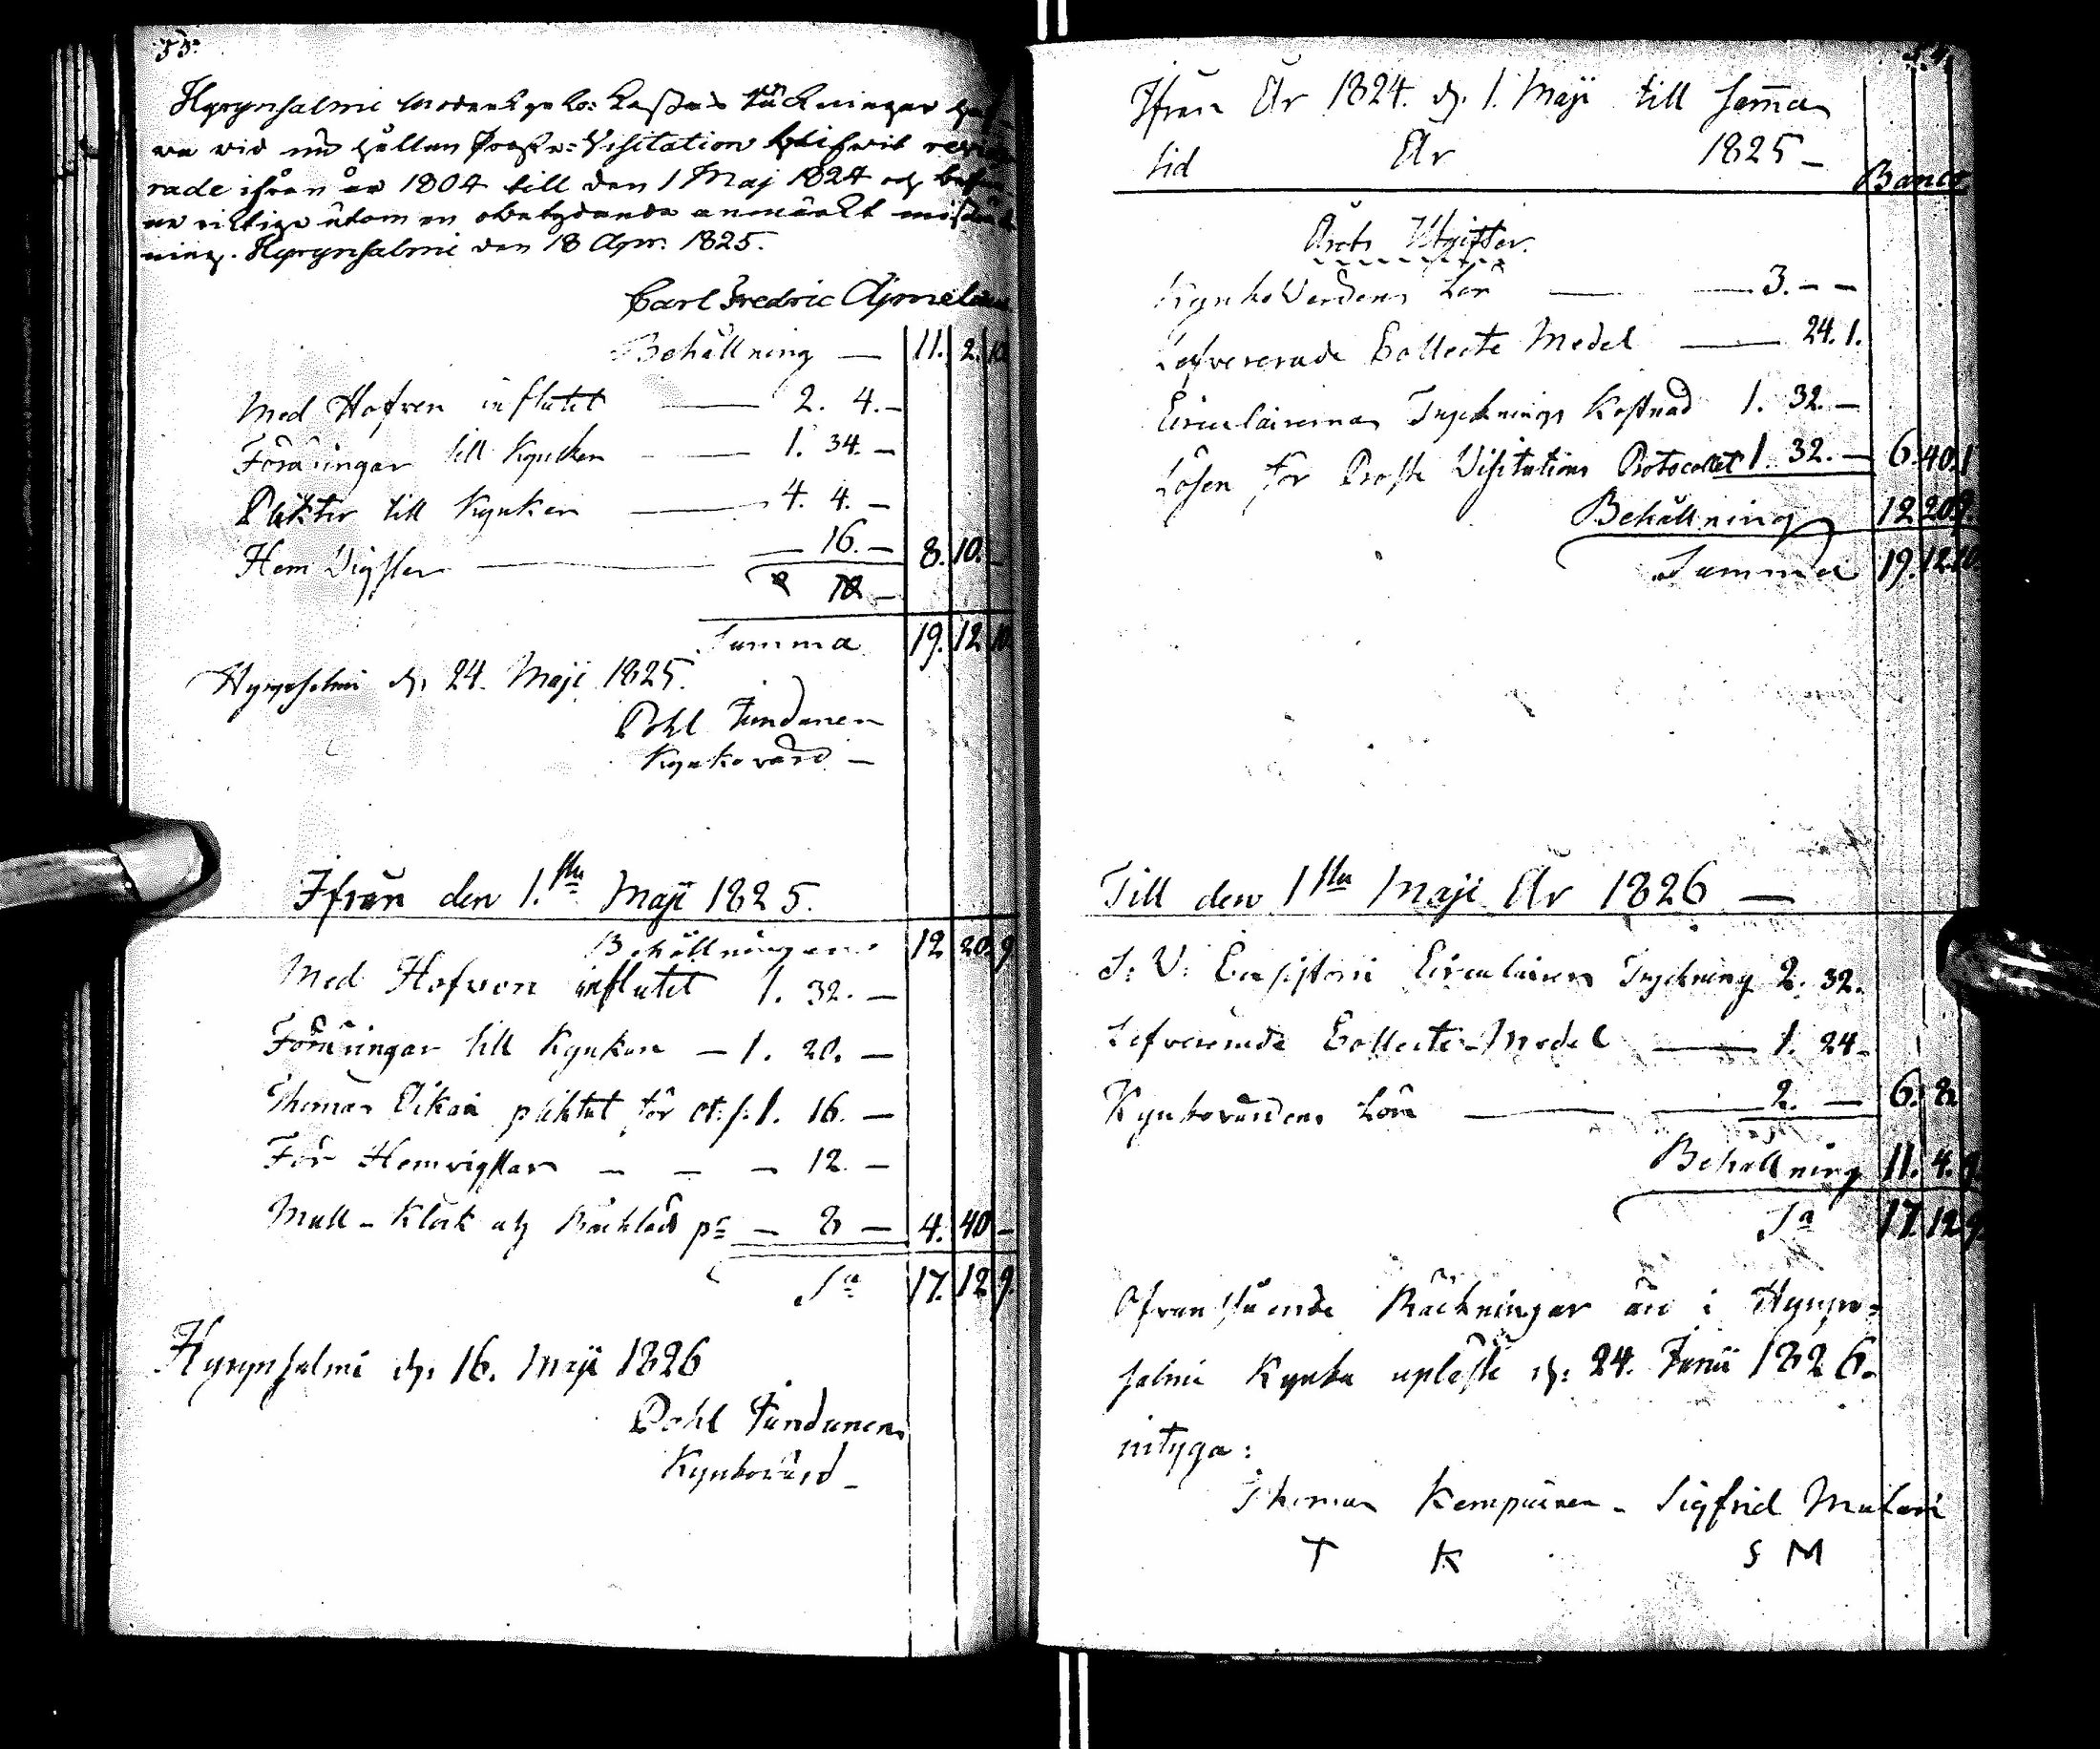 53.
Hyrynsalmi Moderkyrko: Kassas Räckningar haf-
va vid nu hållen Prosts-Visitation blifvit revide
rade ifrån år 1804 till den 1 Maj 1824 och befun
ne riktige utom en obetydande anmärkt misräk
ning. Hyrynsalmi den 18 Apr: 1825.
Carl Fredric Ajmelæus
Behållning — 11. 2. 10
Med Hofven influtit — 2. 4. —
Föräringar till Kyrckan — 1. 34. —
Plikter till Kyrkan — 4. 4. —
Hem Vigslar — 16. — 8. 10. —
Summa 19. 12 10
Hyrynsalmi d. 24. Maji 1825.
Pohl Jundunen
Kyrkovärd —
Ifrån den 1.sta Maji 1825.
Behållningen 12 20. 9
Med Hofven influtit 1. 32. —
Föräringar till Kyrkan — 1. 20. —
Thomas pliktat för 1. 16. —
För Hemvigslar — — — 12. —
Mull-Klock och — 8 — 4. 40 —
Sa 17. 12 9.
Hyrynsalmi d. 16. Maji 1826
Pohl Jundunen
Kyrkovärd —
54.
Ifrån År 1824. d. 1. Maji till samma
tid År 1825 —
Banco
Årets Utgifter.
KyrkoVärdens Lön — 3. — —
Lefvererade Collecte Medel — 24. 1.
Circulairernas Trycknings Kostnad 1. 32. —
Lösen för Prosts Visitations Protocollet 1. 32. — 6. 40. 1
Behållning 12 20. 9
Summa 19. 12. 10.
Till den 1sta Maji År 1826 —
S: V: Consistorii Circulairers Tryckning 2. 32.
Lefvererade Collecte-Medel — 1. 24 —
Kyrkovärdens Lön — 2. — 6. 8
Behållning 11. 4. 9
Sa 17. 12 9.
Ofvanstående Räckningar äro i Hyryn=
salmi Kyrka upläste d: 24. Junii 1826.
intyga:
Thomas Kempainen — Sigfrid Mulari
T K S M